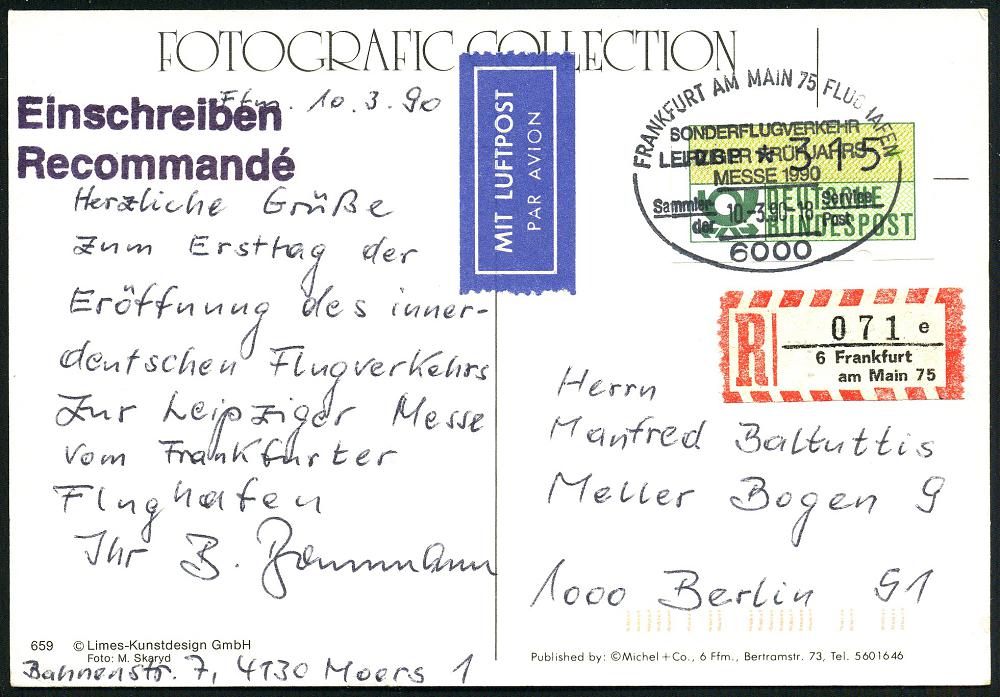 FOTOGRAFIC COLLECTION
Einschreiben
Recommandé
Ffm. 10.3.90
Herzliche Grüße
zum Ersttag der
Eröffnung des inner-
deutschen Flugverkehrs
zur Leipziger Messe
vom Frankfurter
Flughafen
Ihr B.
659 © Limes-Kunstdesign GmbH
Foto: M. Skaryd
Bahnenstr. 7, 4130 Moers 1
MIT LUFTPOST
PAR AVION
FRANKFURT AM MAIN 75 FLUGHAFEN
SONDERFLUGVERKEHR
LEIPZIGER FRÜHJAHRS-
MESSE 1990
Sammler-
der
10.-3.90-18
Service
Post
6000
DBP * 315
DEUTSCHE
BUNDESPOST
R
071 e
6 Frankfurt
am Main 75
Herrn
Manfred Baltuttis
Meller Bogen 9
1000 Berlin 51
Published by: ©Michel + Co., 6 Ffm., Bertramstr. 73, Tel. 5601646